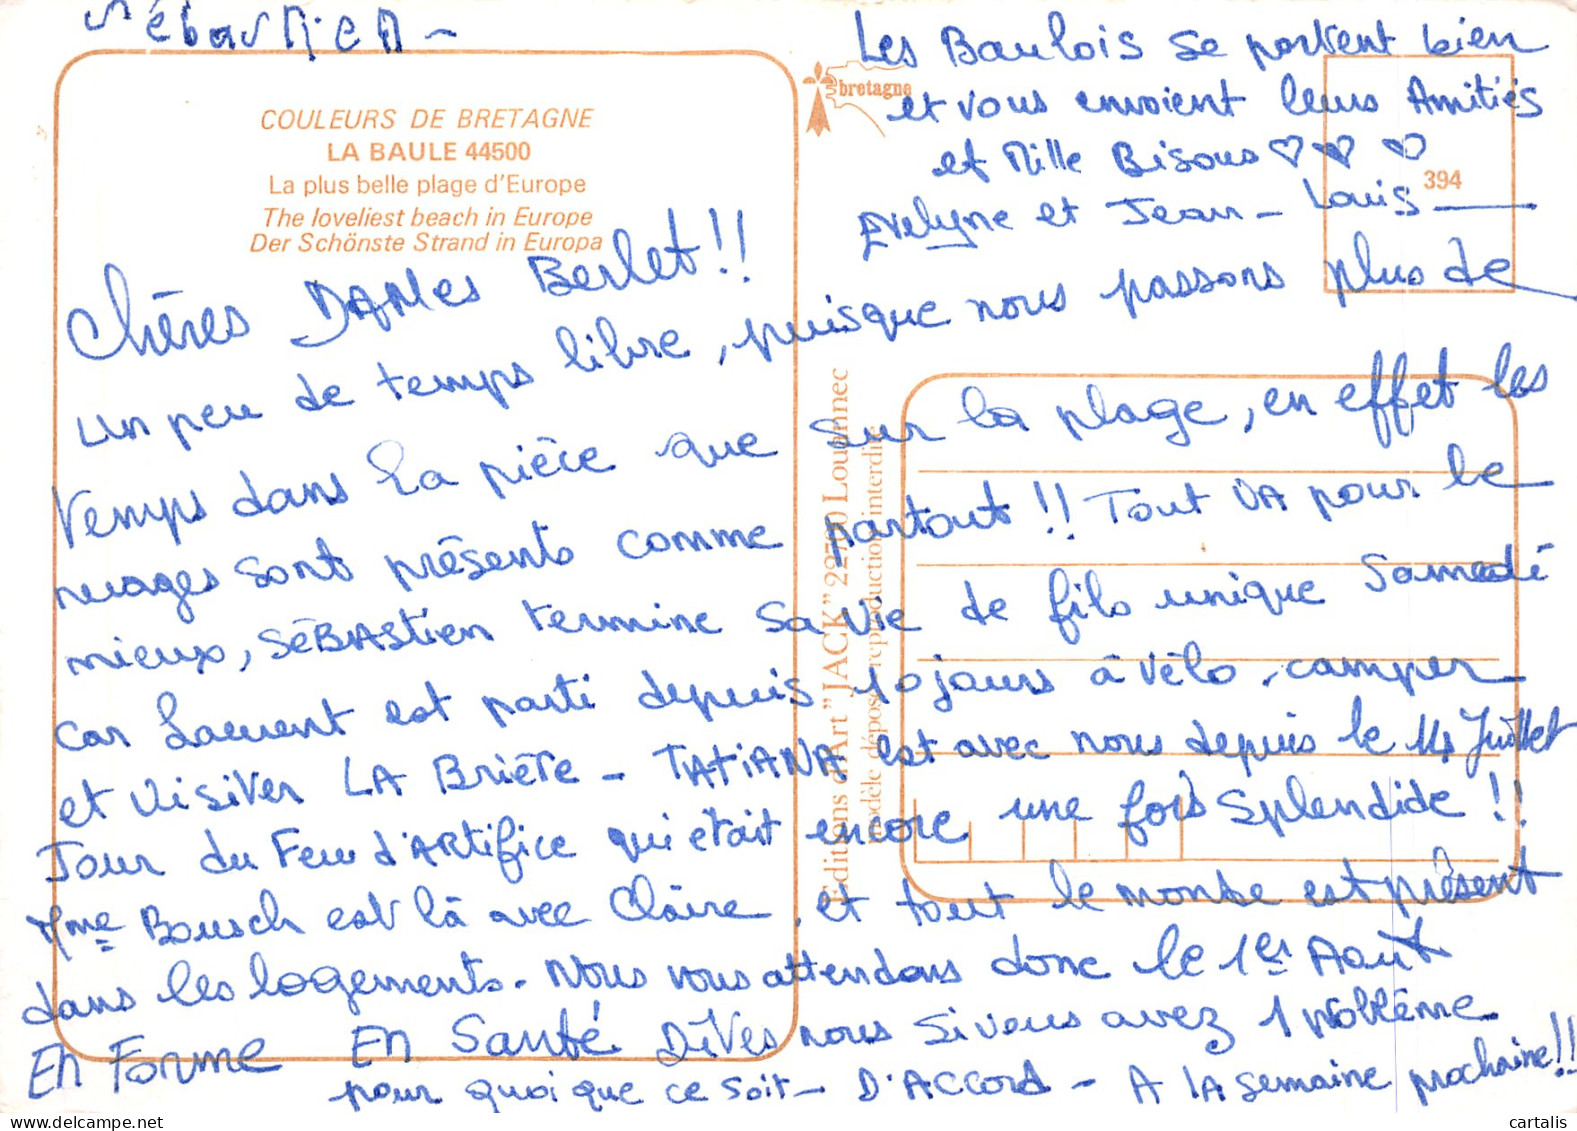 Sébastien -
COULEURS DE BRETAGNE
LA BAULE 44500
La plus belle plage d'Europe
The loveliest beach in Europe
Der Schönste Strand in Europa
bretagne
394
Les Baulois se portent bien
et vous envoient leurs Amitiés
et Mille Bisous ♡ ♡ ♡
Evelyne et Jean - Louis
Chères DAMes Berlet!!
un peu de temps libre, puisque nous passons plus de
temps dans la pièce que sur la plage, en effet les
nuages sont présents comme partout!! Tout VA pour le
mieux, SéBAStien termine sa vie de fils unique Samedi
car Laurent est parti depuis 10 jours à vélo, camper
et visiter LA Brière - TATiANA est avec nous depuis le 14 Juillet
Jour du Feu d'ARtifice qui était encore une fois splendide!!
Mme Bousch est là avec Claire, et tout le monde est présent
dans les logements. Nous vous attendons donc le 1er Août
En Forme En Santé Dites nous si vous avez 1 problème
pour quoi que ce soit - D'ACCord - A lA semaine prochaine!!
Editions d'Art "JACK" 22700 Louannec
modèle déposé reproduction interdite
cartalis